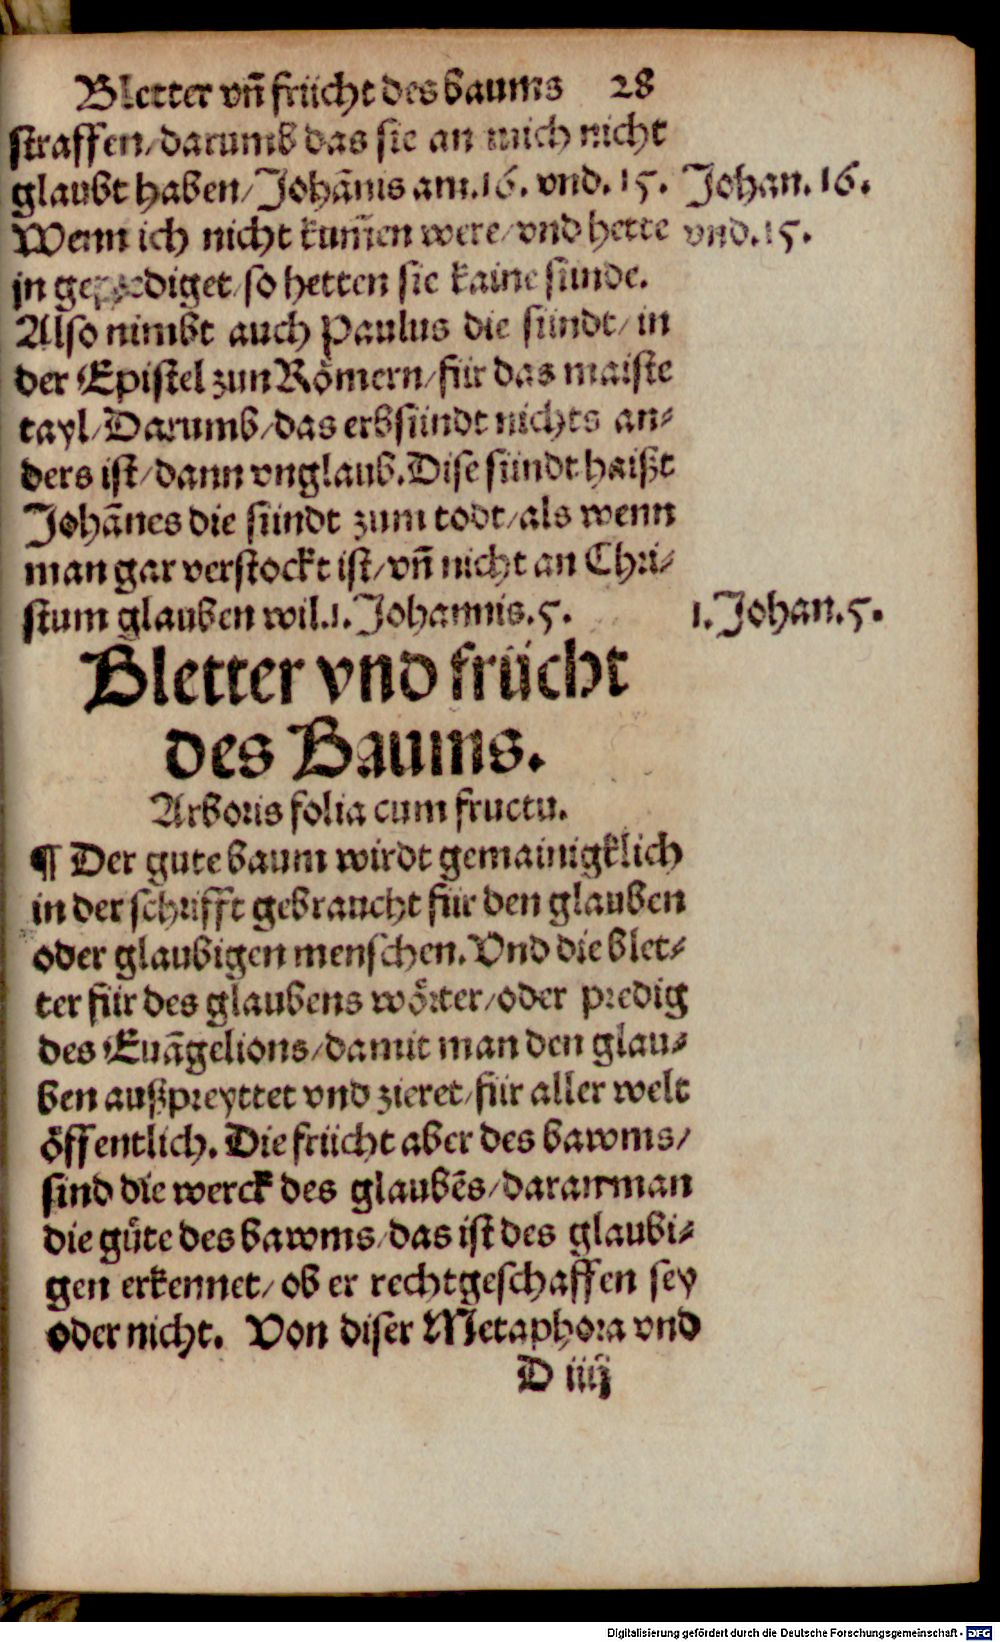 Bletter vñ frücht des baums 28
straffen/darumb das sie an mich nicht
glaubt haben/Johānis am.16. vnd.15.
Johan.16.
Wenn ich nicht kum̄en were/vnd hette
vnd.15.
jn geprediget/so hetten sie kaine sünde.
Also nimbt auch Paulus die sündt/in
der Epistel zun Römern/für das maiste
tayl/Darumb/das erbsündt nichts an⸗
ders ist/dann vnglaub.Dise sündt haißt
Johānes die sündt zum todt/als wenn
man gar verstockt ist/vñ nicht an Chri⸗
stum glauben wil.1.Johannis.5.
1.Johan.5.
Bletter vnd frücht
des Baums.
Arboris folia cum fructu.
¶ Der gute baum wirdt gemainigklich
in der schrifft gebraucht für den glauben
oder glaubigen menschen.Vnd die blet⸗
ter für des glaubens wörter/oder predig
des Euāgelions/damit man den glau⸗
ben außpreyttet vnd zieret/für aller welt
öffentlich.Die frücht aber des bawms/
sind die werck des glaubēs/daran man
die güte des bawms/das ist des glaubi⸗
gen erkennet/ob er rechtgeschaffen sey
oder nicht. Von diser Metaphora vnd
D iiij
Digitalisierung gefördert durch die Deutsche Forschungsgemeinschaft - DFG